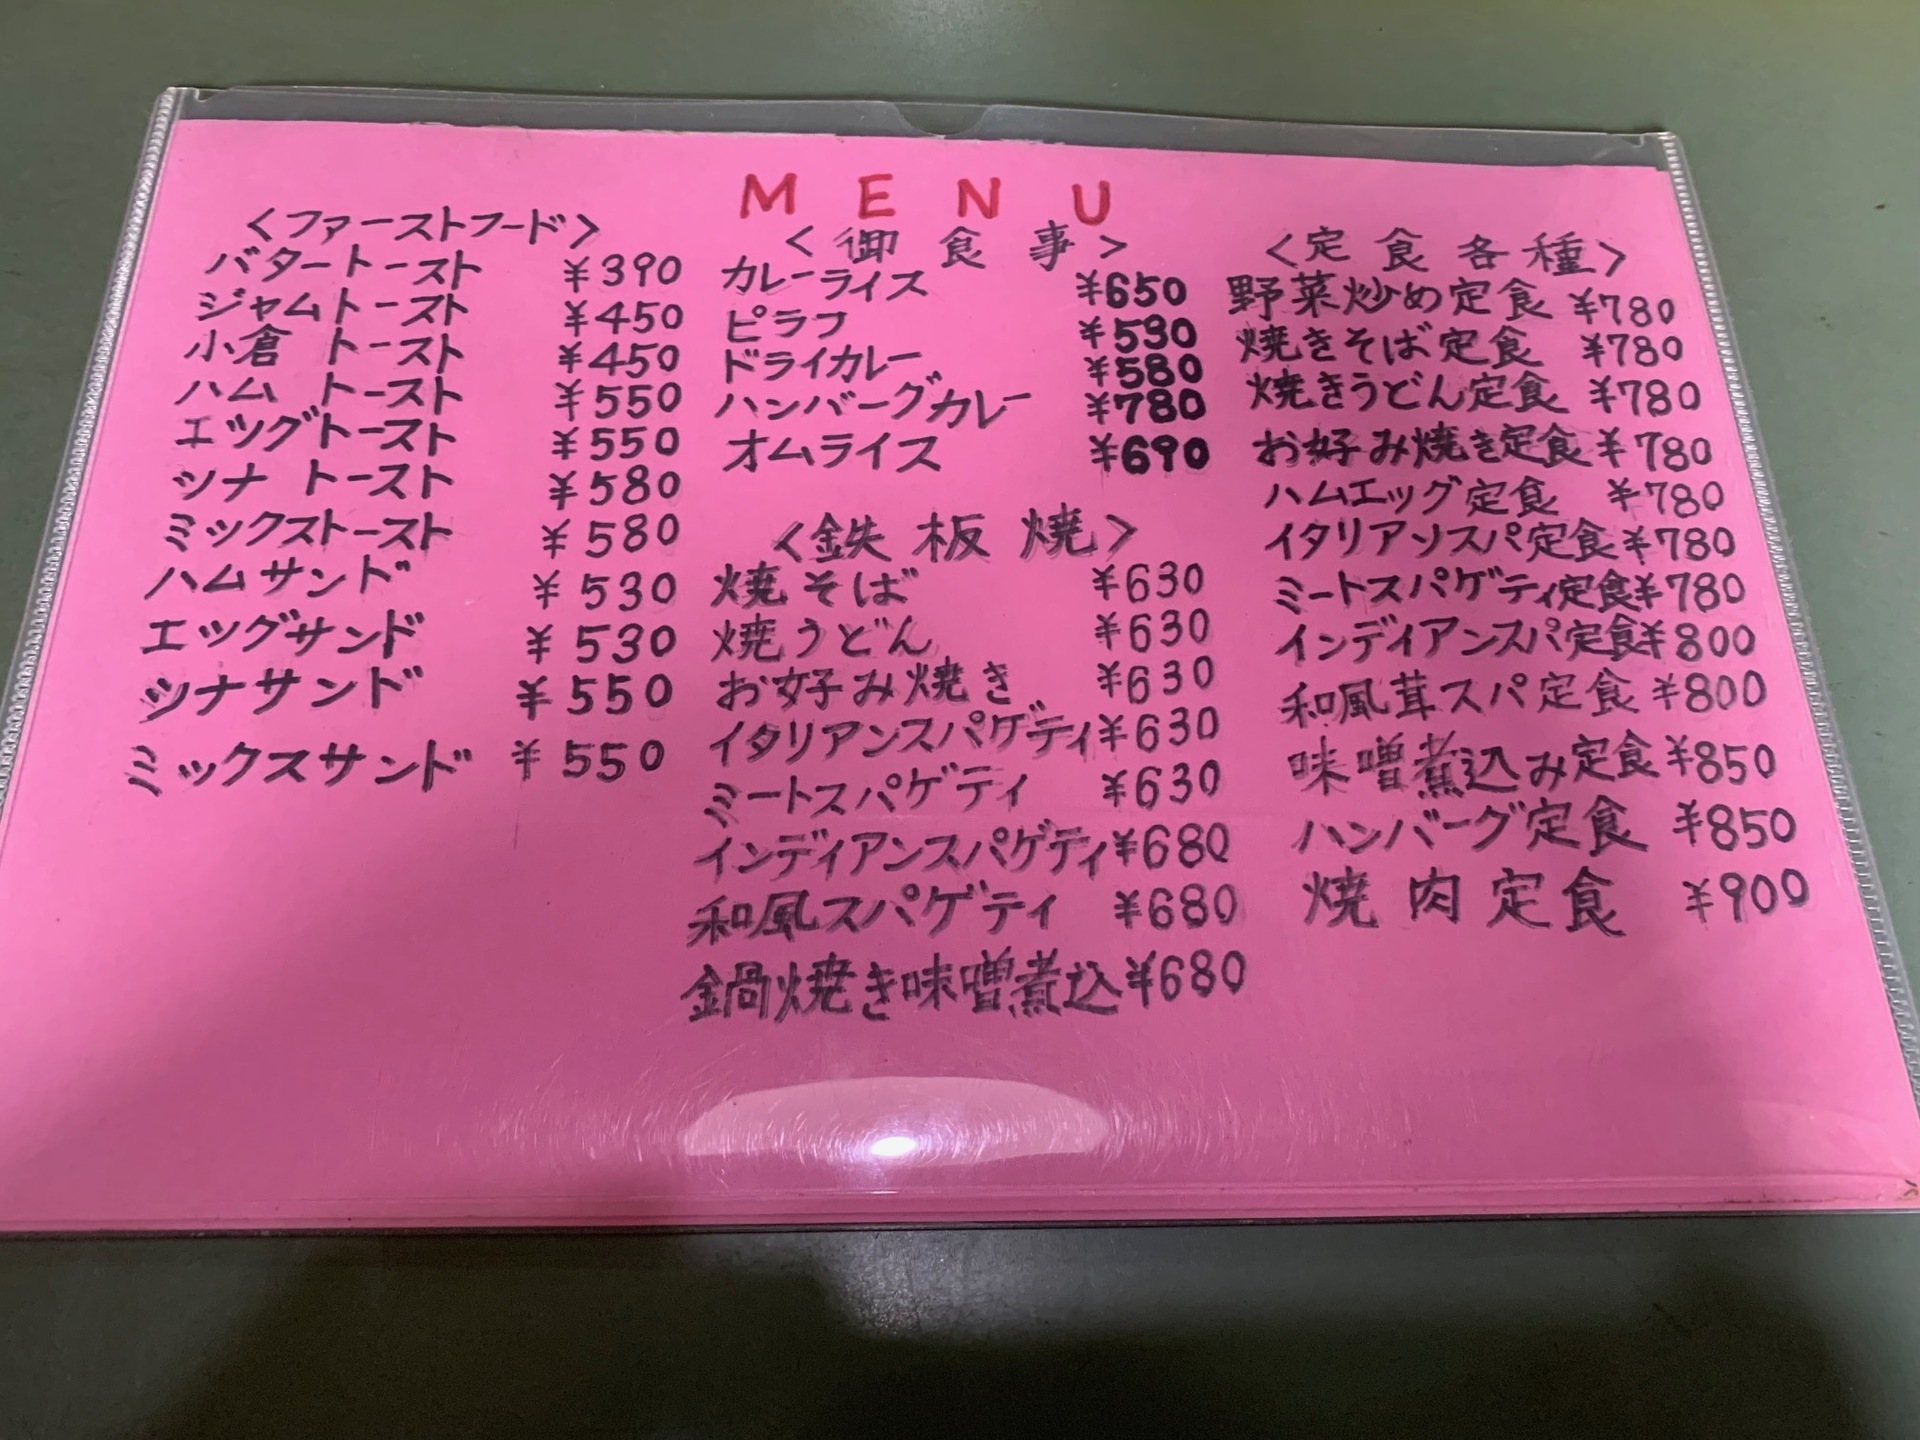 MENU
<ファーストフード>
バタートースト ¥390
ジャムトースト ¥450
小倉トースト ¥450
ハムトースト ¥550
エッグトースト ¥550
ツナトースト ¥580
ミックストースト ¥580
ハムサンド ¥530
エッグサンド ¥530
ツナサンド ¥550
ミックスサンド ¥550
<御食事>
カレーライス ¥650
ピラフ ¥530
ドライカレー ¥580
ハンバーグカレー ¥780
オムライス ¥690
<鉄板焼>
焼そば ¥630
焼うどん ¥630
お好み焼き ¥630
イタリアンスパゲティ ¥630
ミートスパゲティ ¥630
インディアンスパゲティ ¥680
和風スパゲティ ¥680
鍋焼き味噌煮込 ¥680
<定食各種>
野菜炒め定食 ¥780
焼きそば定食 ¥780
焼きうどん定食 ¥780
お好み焼き定食 ¥780
ハムエッグ定食 ¥780
イタリアンスパ定食 ¥780
ミートスパゲティ定食 ¥780
インディアンスパ定食 ¥800
和風茸スパ定食 ¥800
味噌煮込み定食 ¥850
ハンバーグ定食 ¥850
焼肉定食 ¥900